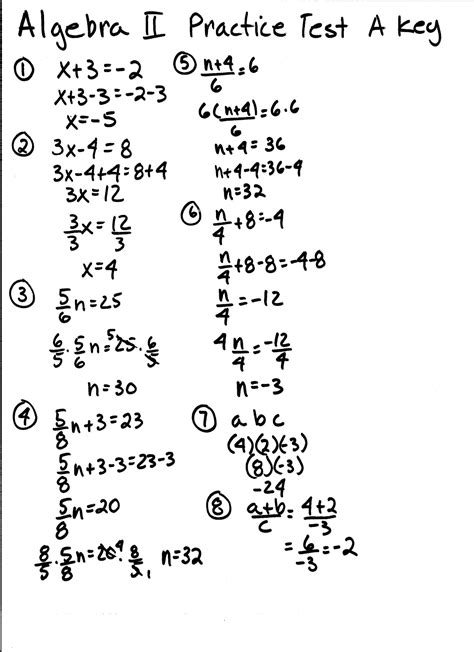 Algebra II Practice Test A Key
① x+3=-2
x+3-3=-2-3
x=-5
② 3x-4=8
3x-4+4=8+4
3x=12
3/3 x=12/3
x=4
③ 5/6 n=25
6/5 · 5/6 n=⁵25 · 6/5
n=30
④ 5/8 n+3=23
5/8 n+3-3=23-3
5/8 n=20
8/5 · 5/8 n=20⁴ · 8/5₁ n=32
⑤ n+4/6=6
6(n+4)/6=6·6
n+4=36
n+4-4=36-4
n=32
⑥ n/4+8=-4
n/4+8-8=-4-8
n/4=-12
4 n/4=-12/4
n=-3
⑦ a b c
(4)(2)(-3)
(8)(-3)
-24
⑧ a+b/c=4+2/-3
=6/-3=-2